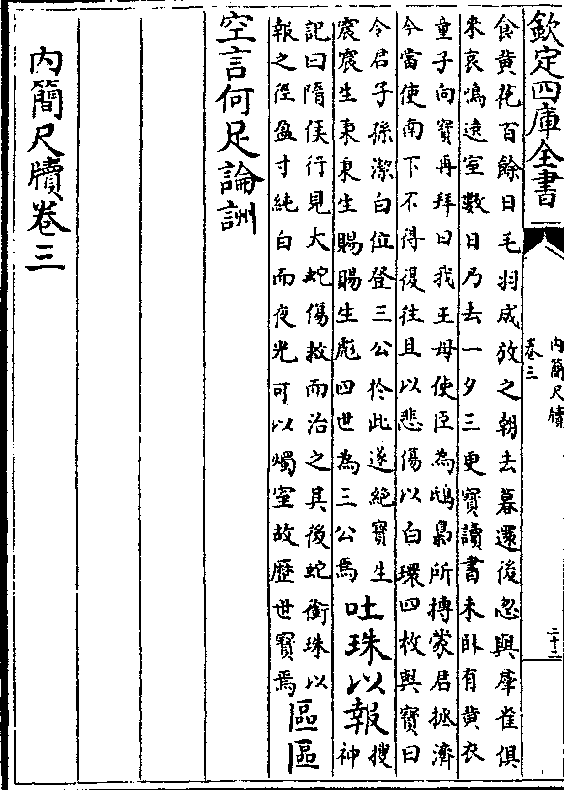 欽定四庫全書
內簡尺牘
卷三
二十二
食黃花百餘日毛羽成放之朝去暮還後忽與羣雀俱
來哀鳴遶室數日乃去一夕三更寳讀書未臥有黃衣
童子向寳再拜曰我王母使臣為鴟梟所搏蒙君拯濟
今當使南下不得復往且以悲傷以白環四枚與寳曰
令君子孫潔白位登三公於此遂絶寳生
震震生秉秉生賜賜生彪四世為三公焉
吐珠以報
搜
神
記曰隋侯行見大蛇傷救而治之其後蛇銜珠以
報之徑盈寸純白而夜光可以燭室故歴世寳焉
區區
空言何足論訓
內簡尺牘卷三